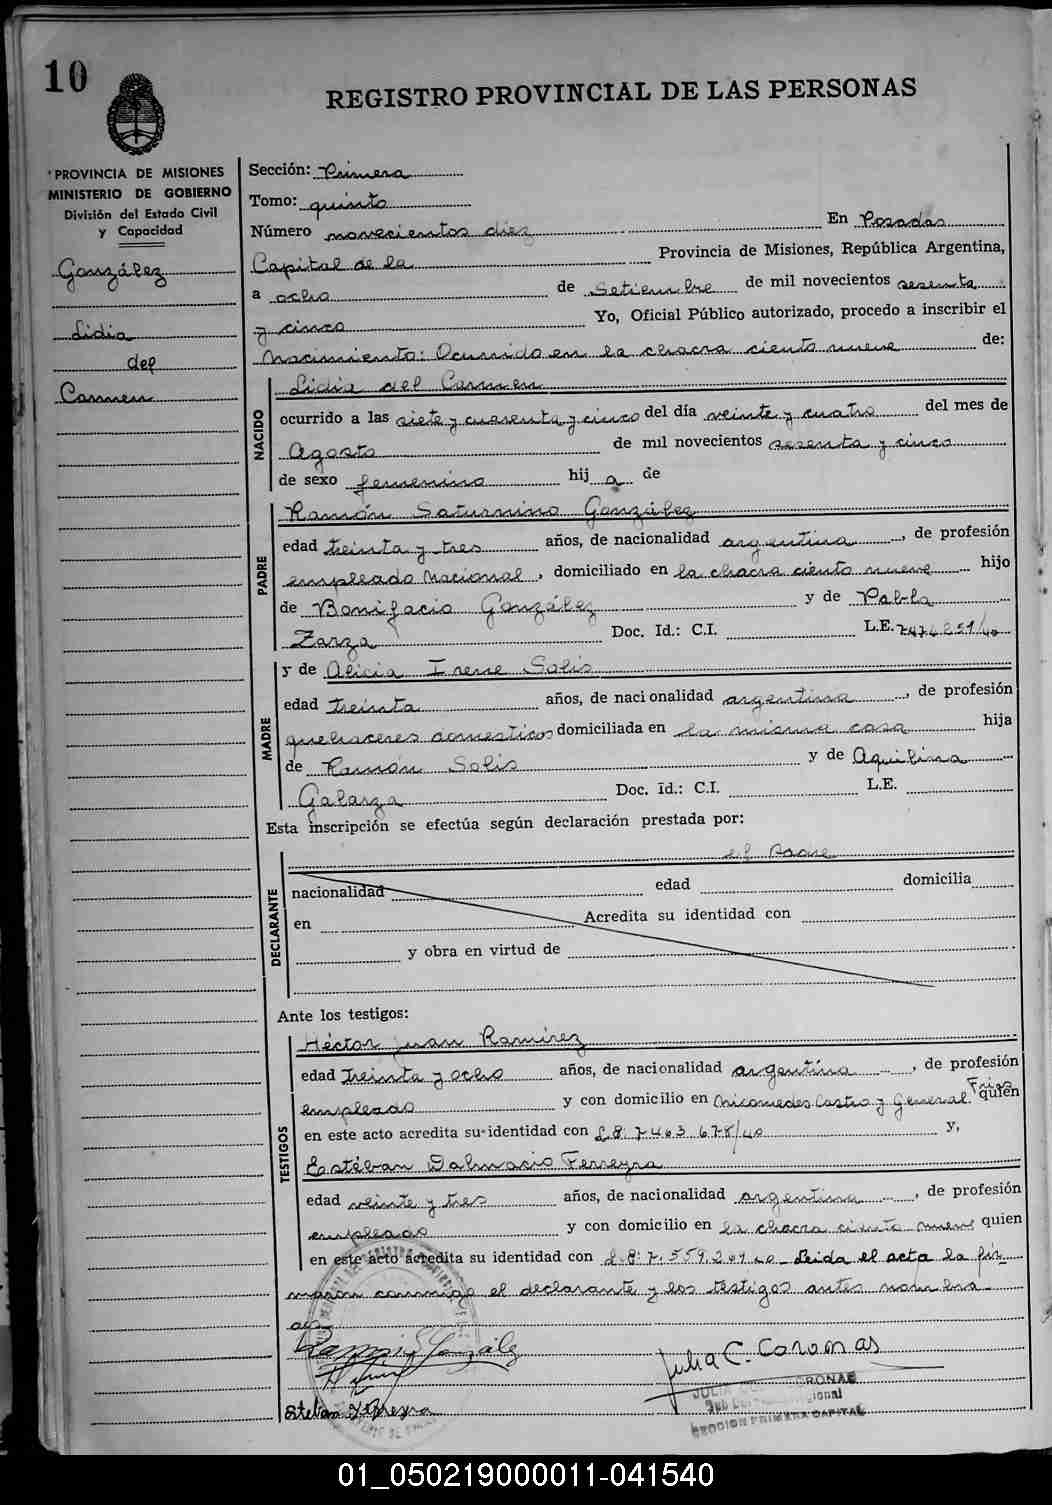 10
REGISTRO PROVINCIAL DE LAS PERSONAS
PROVINCIA DE MISIONES
MINISTERIO DE GOBIERNO
División del Estado Civil
y Capacidad
González
Lidia
del
Carmen
Sección: Primera
Tomo: quinto
Número novecientos diez En Posadas
Capital de la Provincia de Misiones, República Argentina,
a ocho de Setiembre de mil novecientos sesenta
y cinco Yo, Oficial Público autorizado, procedo a inscribir el
Nacimiento: Ocurrido en la chacra ciento nueve de:
NACIDO
Lidia del Carmen
ocurrido a las siete y cuarenta y cinco del día veinte y cuatro del mes de
Agosto de mil novecientos sesenta y cinco
de sexo femenino hij a de
PADRE
Ramón Saturnino González
edad treinta y tres años, de nacionalidad argentina, de profesión
empleado Nacional, domiciliado en la chacra ciento nueve hijo
de Bonifacio González y de Pabla
Zarza Doc. Id.: C.I. L.E.
MADRE
y de Alicia Irene Solis
edad treinta años, de nacionalidad argentina, de profesión
quehaceres domesticos domiciliada en la misma casa hija
de Ramón Solis y de Aquilina
Galarza Doc. Id.: C.I. L.E.
Esta inscripción se efectúa según declaración prestada por:
DECLARANTE
el Padre
nacionalidad edad domicilia
en Acredita su identidad con
y obra en virtud de
Ante los testigos:
TESTIGOS
Héctor Juan Ramírez
edad treinta y ocho años, de nacionalidad argentina, de profesión
empleado y con domicilio en Nicomedes Castro y General Frías quien
en este acto acredita su identidad con L.E: 7463.678/40 y,
Estéban Dalmacio Ferreyra
edad veinte y tres años, de nacionalidad argentina, de profesión
empleado y con domicilio en la chacra ciento nueve quien
en este acto acredita su identidad con L.E: 7.559.2 Leida el acta la fir-
maron conmigo el declarante y los testigos antes nombra-
dos
Ramón S González
Julia C. Coronas
Steban Ferreyra
JULIA CORONAS
SECCION PRIMERA CAPITAL
01_050219000011-041540